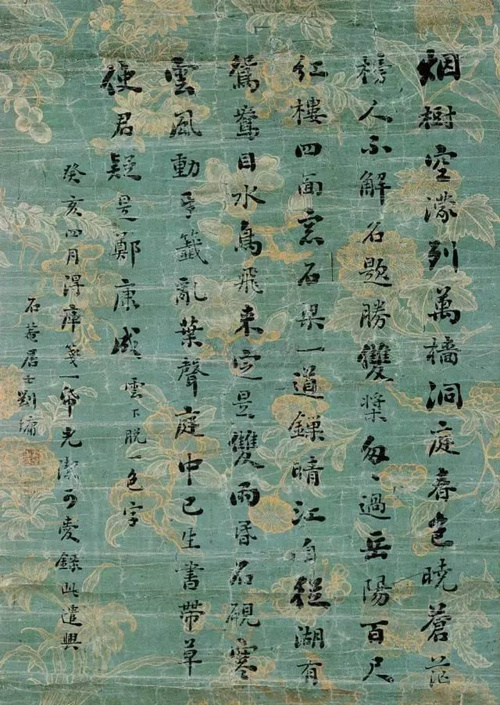 烟樹空濛列萬檣洞庭春色曉蒼茫
榜人不解名題勝雙槳匆々過岳陽百尺
紅樓四面窓石梁一道鏁晴江自從湖有
鴛鴦目水鳥飛来定是雙雨昏石硯寒
雲風動牙籤亂葉聲庭中已生書帶草
使君疑是鄭康成 雲下脫一色字
癸亥四月得庫箋一帋光潔可愛錄此遣興
石菴居士劉墉